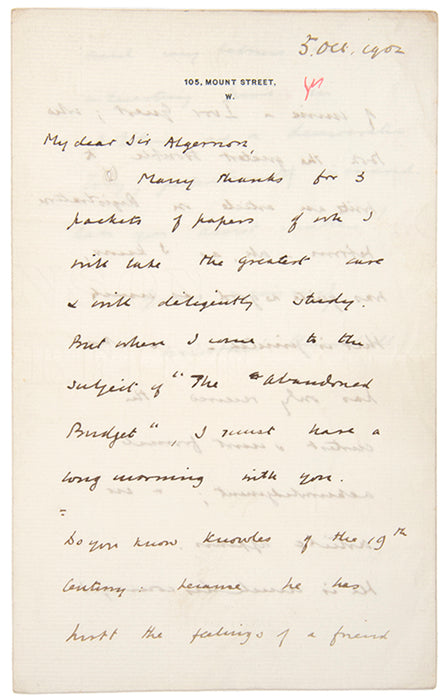 5. Oct. 1902
105, MOUNT STREET,
W.
yes
My dear Sir Algernon,
Many thanks for 3
packets of papers of wh I
will take the greatest care
& will diligently study.
But when I come to the
subject of "The "Abandoned
Budget", I must have a
long morning with you.
Do you know Knowles of the 19th
Century: because he has
hurt the feelings of a friend